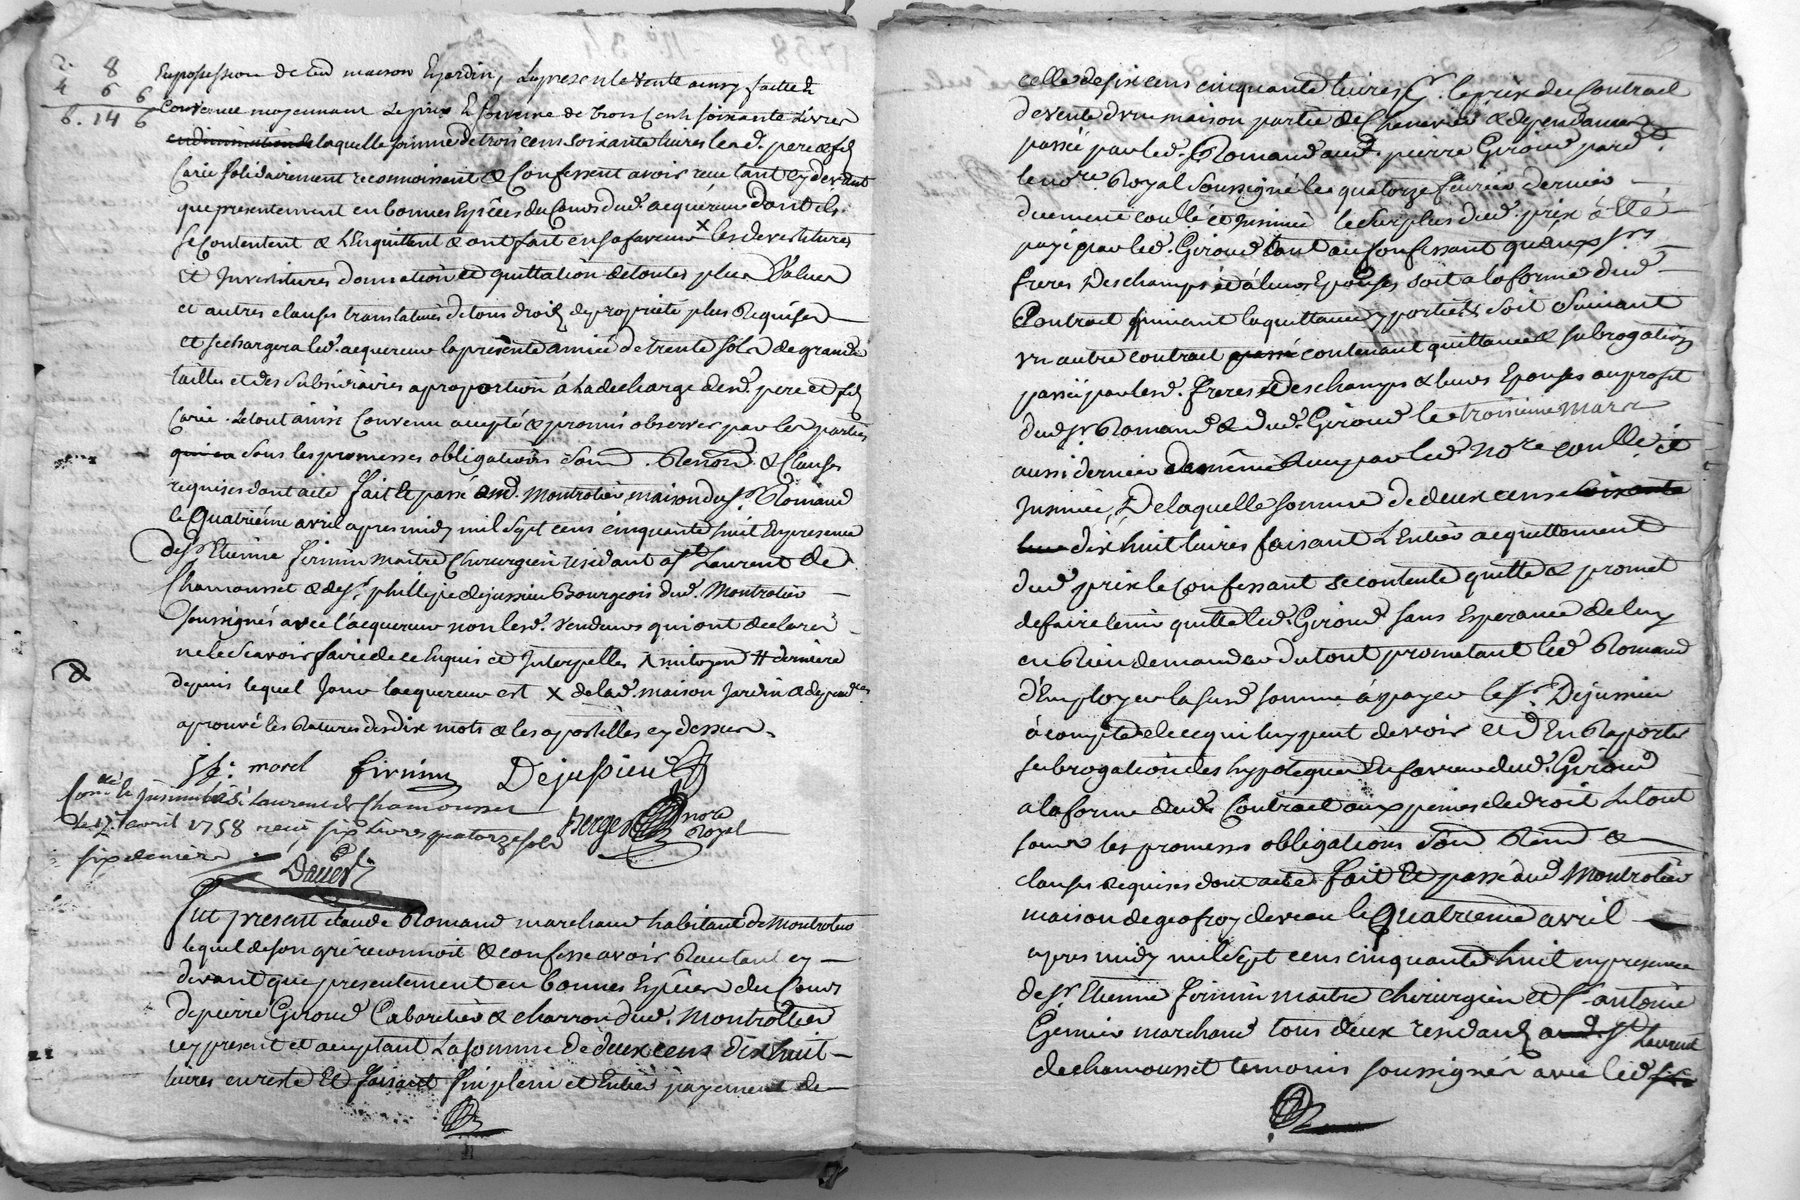 2. 8
4 6 6
6. 14 6
En possession de lad maison Ejardin, La presente vente ainsy faitte &
Convenue moyennant Le prix & Somme de trois Cents soixante Livres
laquelle somme de trois cens soixante livres lesd. pere & fils
Carie solidairement reconnoissent & Confessent avoir receu tant cy devant
que presentement en bonnes Espêces du Cours dud. acquereur dont ils
se Contentent & L'Enquittent & ont fait en sa faveur X les devestitures
et Investitures donnation et quittation de toutes plus Values
et autres clauses translatives de tous droits de proprieté plus Requises
et se chargera led. acquereur la presente année de trente sols de grande
tailles et des subsidiaires a proportion á la decharge desd. pere et fils
Carie. Le tout ainsi Convenu accepté & promis observer par les parties
sous les promesses obligations Renon. & Clauses
requises dont acte fait Et passé aud. Montrotier maison du Sr. Romand
le Quatriéme avril apres midy mil sept cens cinquante huit En presence
de Sr. Etienne firmin maitre Chirurgien residant a St Laurent de
Chamousset & de Sr. phillipe dejussieu Bourgeois dud. Montrotier
soussignés avec l'acquereur non lesd. Vendeurs qui ont declaré
ne le Scavoir faire de ce Enquis et Interpellés mitoyen # derniere
depuis lequel Jour lacquereur est X de lad. maison Jardin & dependces
aprouvé les Ratures des dix mots & les apostilles cy dessus.
morel firmin Dejussieu
Conlé & Insinué à St Laurent de Chamousset
le 17 avril 1758 receu six Livres quatorze sols
six deniers
Berger nore Royal
Fut present claude Romand marchand habitant de Montrotier
lequel de son gré reconnoit & confesse avoir Receu tant cy
devant que presentement en bonnes Espêces du Cours
de pierre Giroud Cabaretier & charron dud. Montrottier
cy present et acceptant La somme de deux cens dix huit
livres en reste Et faisant fin plein et Entier payement de
celle de six cens cinquante livres le prix du Contrat
de vente d'vne maison partie de Cheneviere & dependances
passée par led. Romand aud. pierre Giroud pard.
le nore. Royal Soussigné le quatorze fevrier dernier
duement conllé et Insinué le Surplus dud. prix á Eté
payé par led. Giroud tant au Confessant qu'aux Srs
freres Deschamps et á leurs Epouses soit a la forme dud.
Contrat quittance y portée soit Suivant
vn autre contrat contenant quittance & subrogation
passée par lesd. freres Deschamps & leurs Epouses au profit
dud Sr Romand & dud. Giroud le troisieme Mars
aussi dernier Reçu par led nore conllé et
Insinué, De laquelle somme de deux cens
dix huit livres faisant L'Entier acquittement
dud prix le Confessant se contente quitte & promet
de faire tenir quitte led. Giroud sans Esperance de luy
en Rien demander du tout prometant led Romand
d'Employer la susd somme á payer le Sr. Dejussieu
á compte de ce qui luy peut devoir et d'En Raporter
subrogation des hypoteques En faveur dud. Giroud
a la forme dud. Contrat aux peines de droit Le tout
sous les promesses obligations &
clauses Requises dont acte fait Et passé aud Montrotier
maison de geofroy deveau le Quatrieme avril
apres midy mil sept cens cinquante huit en presence
de Sr. Etienne firmin maitre chirurgien et Sr antoine
marchand tous deux residants St Laurent
de chamousset temoins soussignés avec led